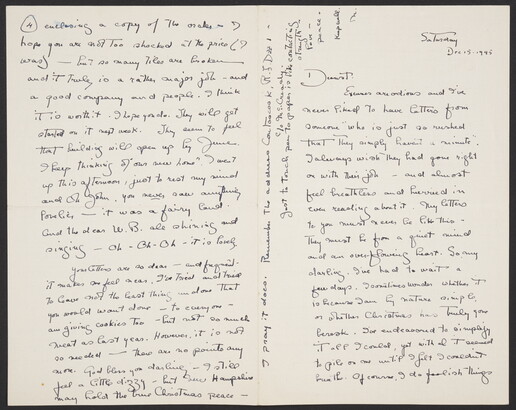 Saturday
Dec. 15 - 1945
Dearest.
never liked to have letters from
someone who is just so rushed
that they simply haven't a minute
I always wish they had gone right
on with their job - and almost
feel breathless and hurried in
even reading about it. My letters
to you must never be like this -
they must be from a quiet mind
and an overflowing heart. So my
darling, I've had to wait a
few days. I sometimes wonder whether I
is because I am by nature simple,
or whether Christmas has truly gone
berserk. I've endeavored to simplify
it all I could, yet with it I seemed
to pile on me until I felt I couldn't
breathe. Of course, I do foolish things
④ enclosing a copy of the order - I
hope you are not too shocked at the price (I
was) - but so many tiles are broken
and it truly is a rather major job - and
a good company and people. I think
it is worth it. I hope you do. They will get
started on it next week. They seem to feel
that building will open up by June.
I keep thinking of our new home. I went
up this afternoon, just to rest my mind
and Oh John, you never saw anything
lovelier - it was a fairy land.
And the dear W.B. all shining and
singing - Oh - Oh - Oh - it is lovely
Your letters are so dear - and frequent.
it makes me feel near. I've tried and tried
to leave not the least thing undone that
you would want done - to everyone -
am giving cookies too - but not so much
meat as last year. However, it is not
so needed - there are no points any
more. God bless you darling - I still
feel a little dizzy - but New Hampshire
may hold the true Christmas peace -
I pray it does. Remember the address Contoocook, R.F.D. #1 -
Just to touch pen to paper is like contacting
strength -
love -
peace -